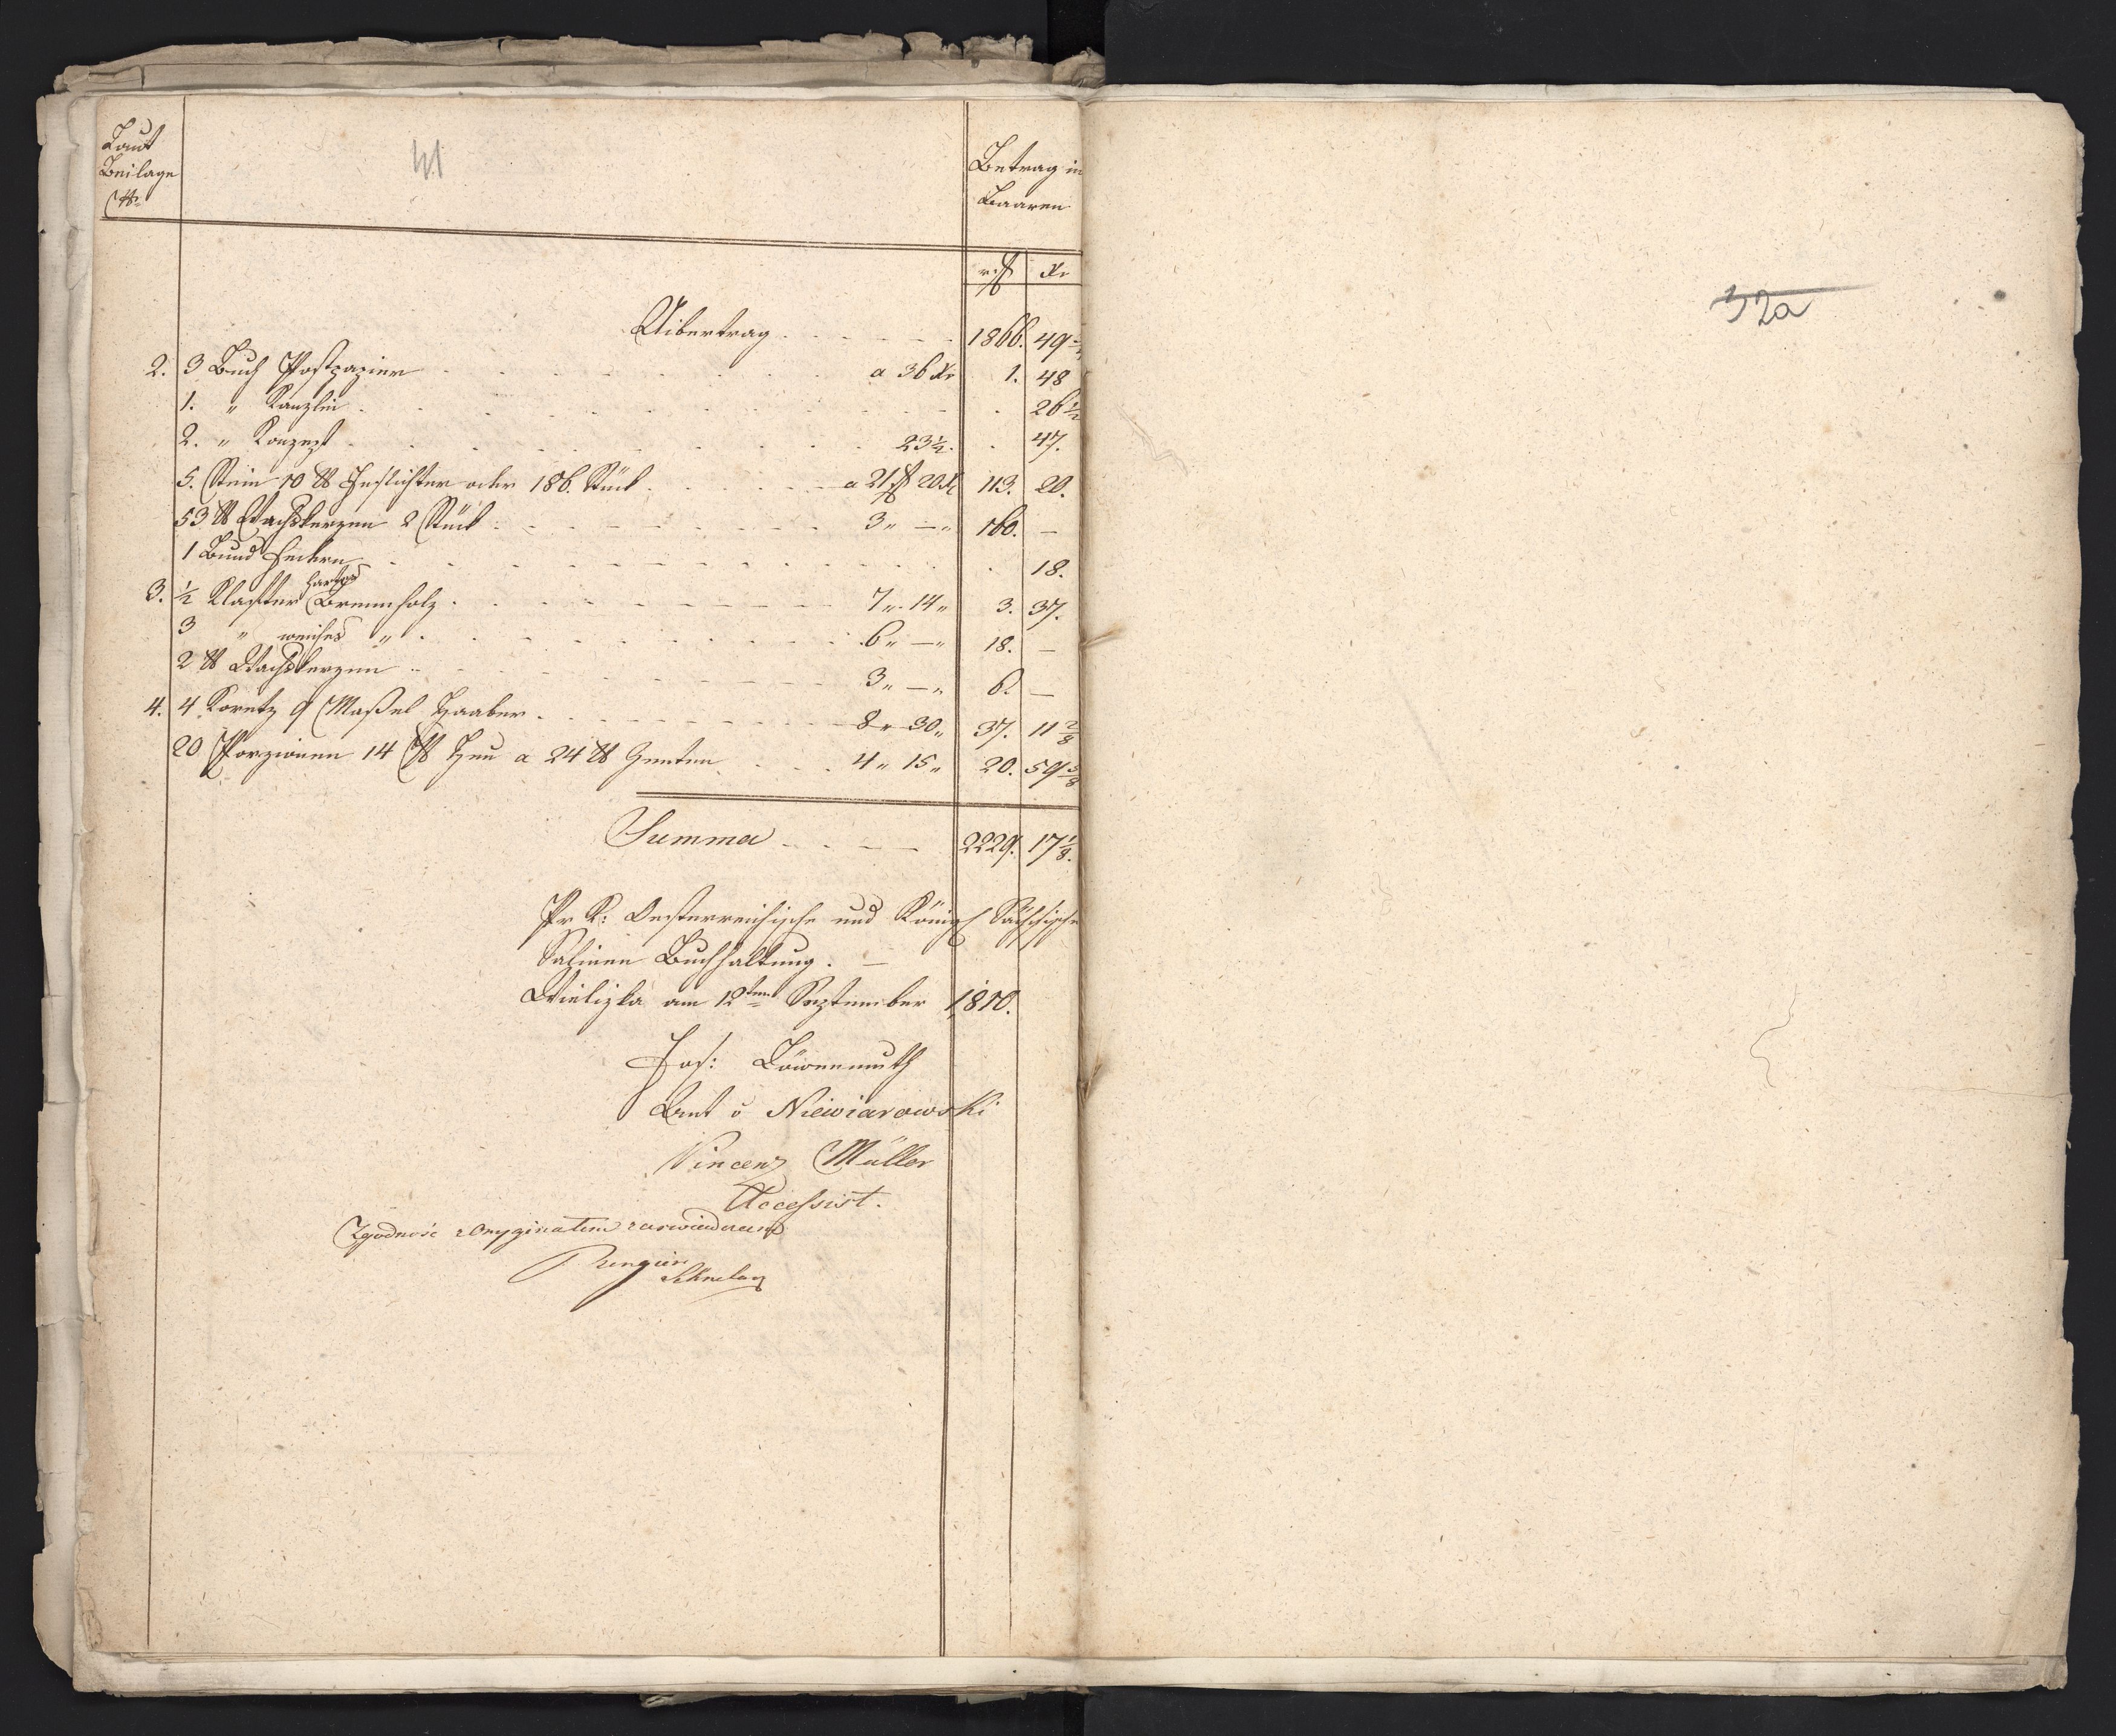 Laut
Beilage
Nr
41
Betrag in
Baaren
rf Xr
Uibertrag . . . . . 1866. 49
2. 3 Buch Postpapier . . . . . a 36 Xr 1. 48
1. " Kanzlei . . . . . 26 1/2
2. " Konzept . . . . . 23 1/2. 47.
5. Stein 10 ℔ Inslichter oder 186. Stück . . . . . a 21 f 20 Xr 113. 20.
53 ℔ Wachskerzen 2 Stück . . . . . 3 " — " 160. —
1 Bund Federn . . . . . 18.
3. 1/2 Klafter hartes Brennholz . . . . . 7 " 14 " 3. 37.
3 " weiches " . . . . . 6 " — " 18. —
2 ℔ Wachskerzen . . . . . 3 " — " 6. —
4. 4 Koretz 9 Maßel Haaber . . . . . 8 " 30 " 37. 11 2/8
20 Porzionen 14 ℔ Heu a 24 ℔ . . . . 4 " 15 " 20. 59 5/8
Summa . . . . 2229. 17 1/8.
Pr K: Oesterreichische und Königl Sächsische
Salinen Buchhaltung. —
Wieliczka am 12ten September 1810.
Jos: Löwenmuth
Niewiarowski
Vincenz Müller
Accessist.
Zgodność z Oryginałem zaswiadczam
Sekretarz
32a